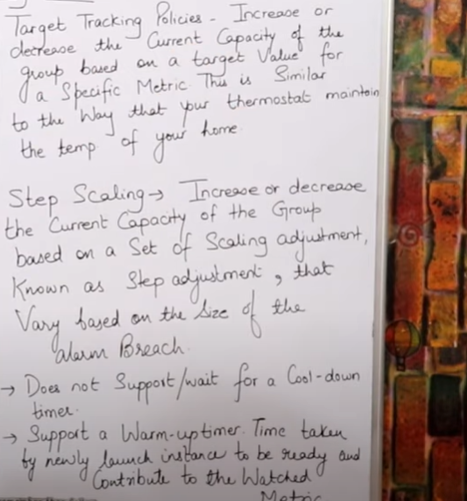 Target Tracking Policies - Increase or
decrease the Current Capacity of the
group based on a target Value for
a Specific Metric This is Similar
to the Way that your thermostat maintain
the temp of your home.
Step Scaling → Increase or decrease
the Current Capacity of the Group
based on a Set of Scaling adjustment,
Known as Step adjustment, that
Vary based on the Size of the
alarm Breach.
→ Does not Support/wait for a Cool-down
timer.
→ Support a Warm-up timer. Time taken
by newly launch instance to be ready and
Contribute to the Watched
Metric